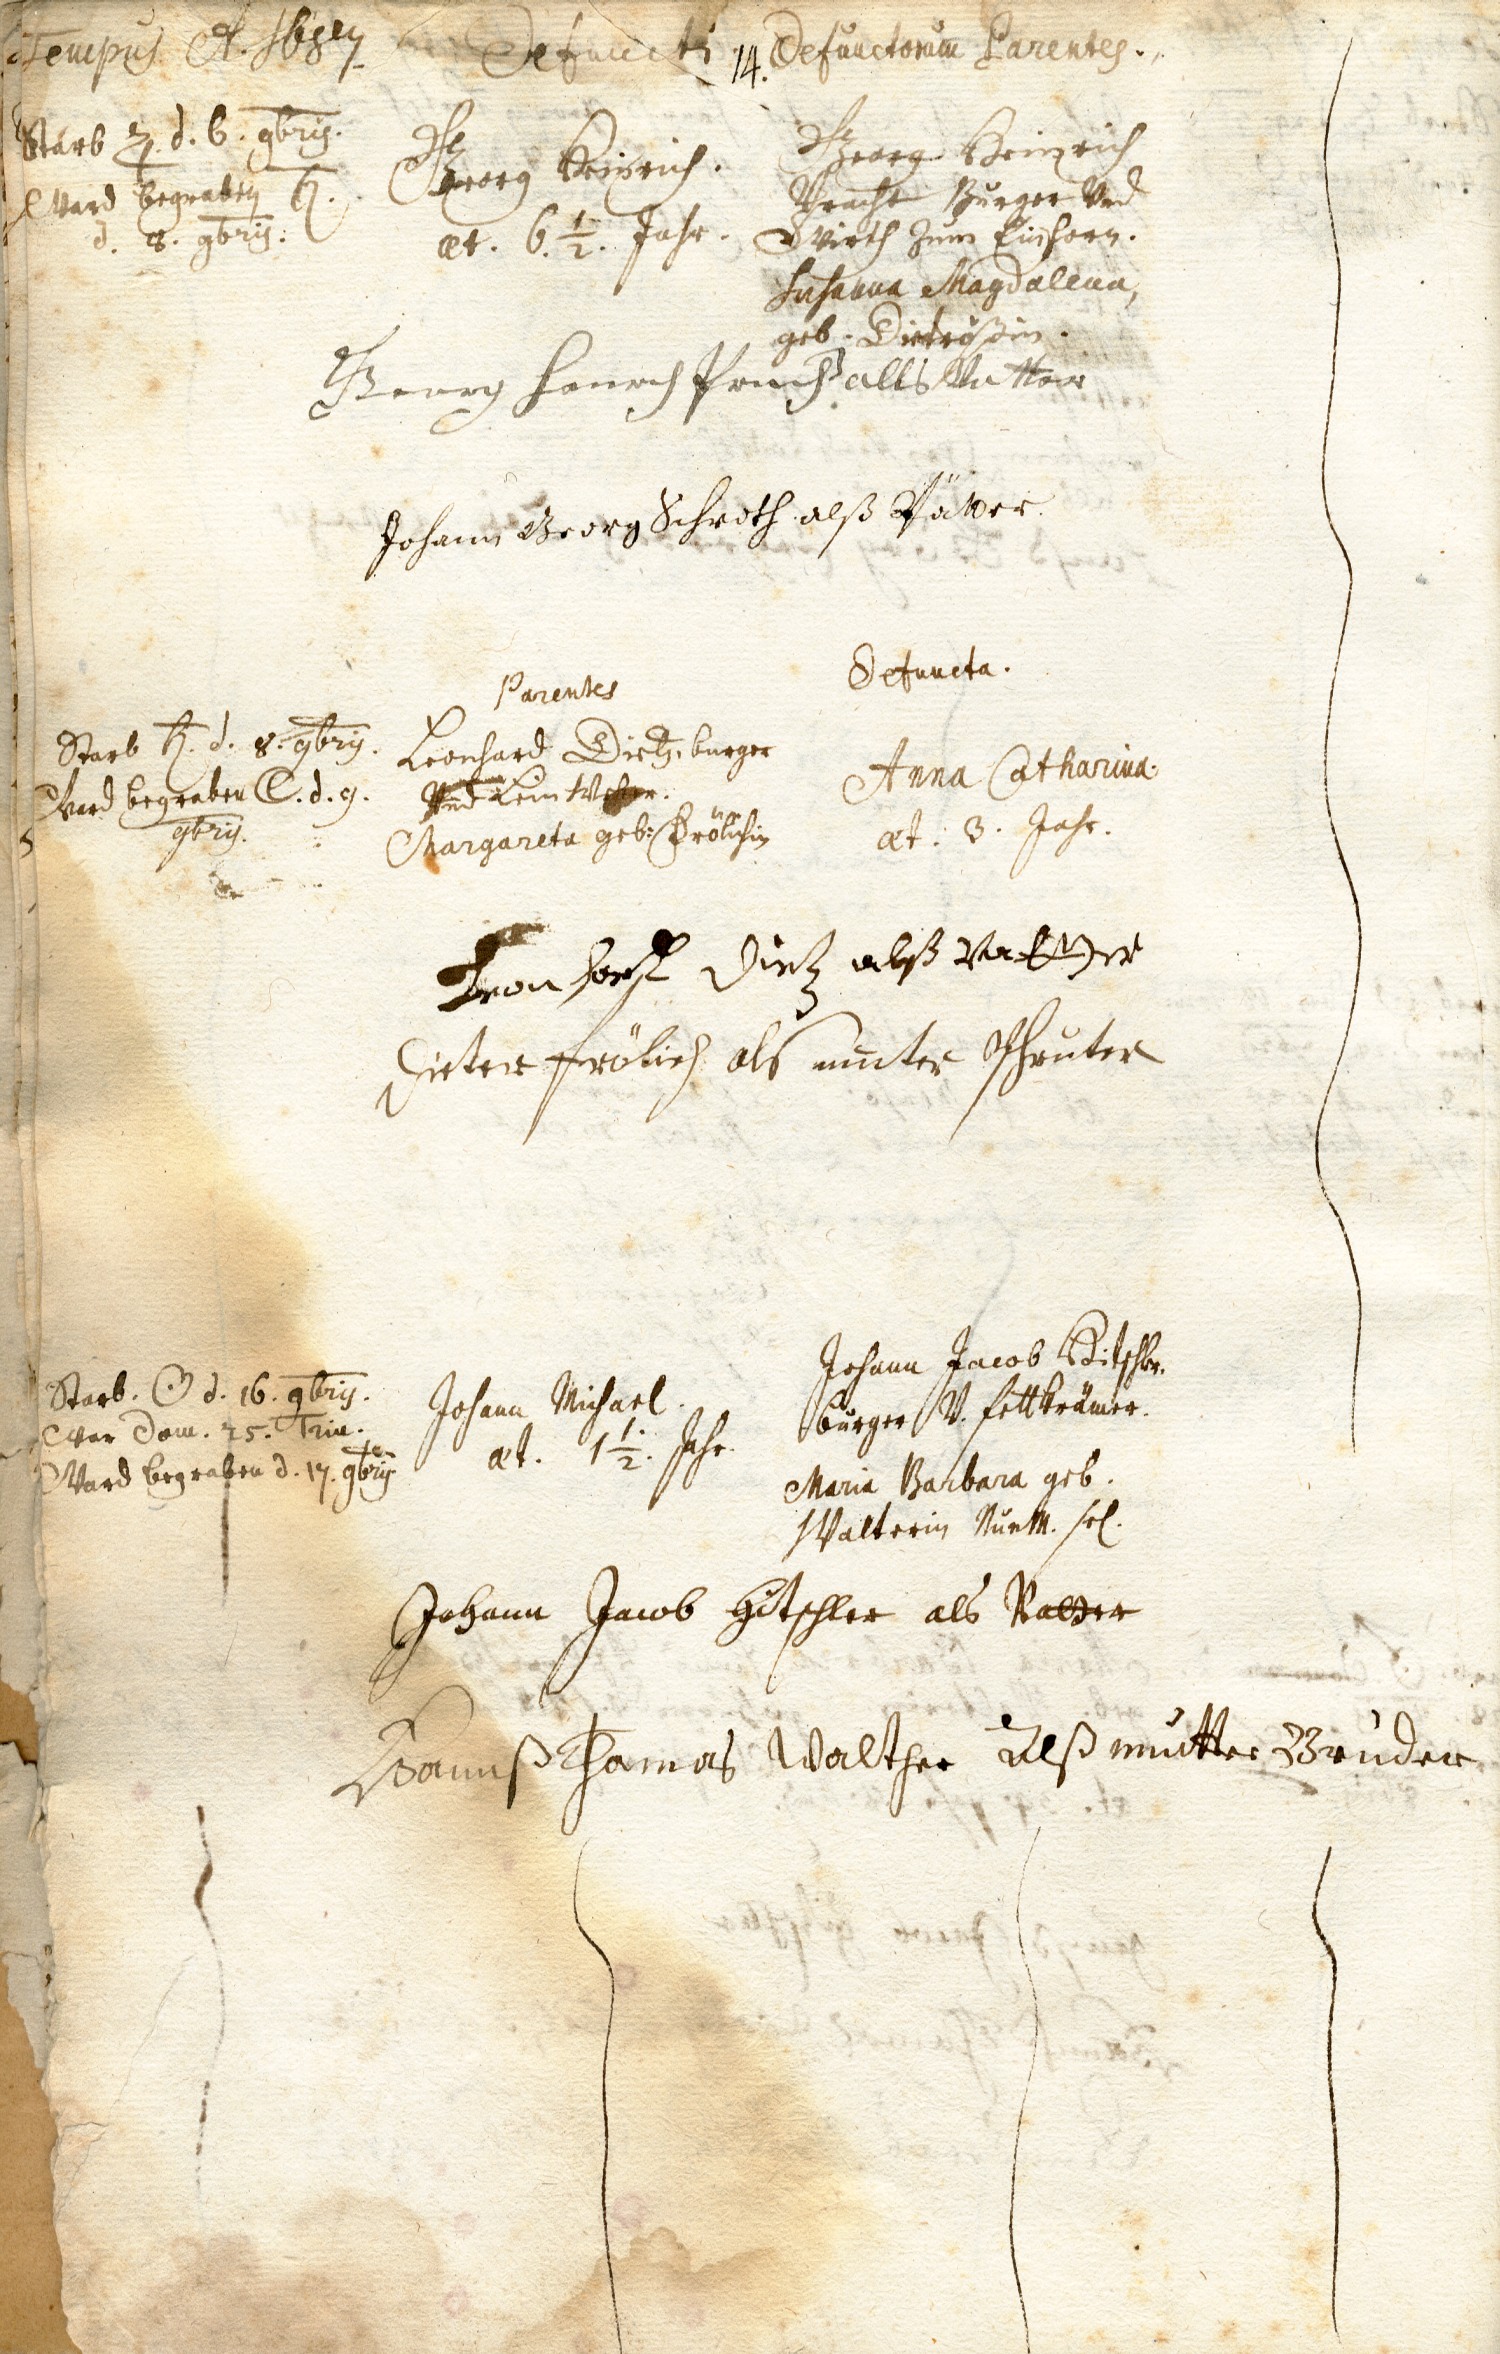 Tempus A. 1687
Defuncti
14.
Defunctorum Parentes.
Starb ♃. d. 6. 9bris.
Ward begraben ♄.
d. 8. 9bris.
Georg Heinrich.
æt. 6. 1/2. Jahr.
Georg Heinrich
Pracht Burger Und
Wirth Zum Einhorn.
Susanna Magdalena,
geb.
Georg Henrich Pracht alls Vatter
Johann Georg Schroth alß
Parentes
Defuncta.
Starb ♄. d. 8. 9bris.
Ward begraben ☾. d. 9.
9bris.
Leonhard Dietz, burger
Und Leinweber.
Margareta geb: Frölichin
Anna Catharina.
æt. 3. Jahr.
Dietz alß Vatter
Dieter Frölich als mutter
Starb. ☉ d. 16. 9bris.
war Dom. 25. Trin.
Ward begraben d. 17. 9bris
Johann Michael.
æt. 1 1/2. Jahr.
Johann Jacob Hitschler.
burger V. fettkrämer.
Maria Barbara geb.
Walterin Nunm. sel.
Johann Jacob Hitschler als Vatter
Hannß Thomas Walther Alß mutter Bruder